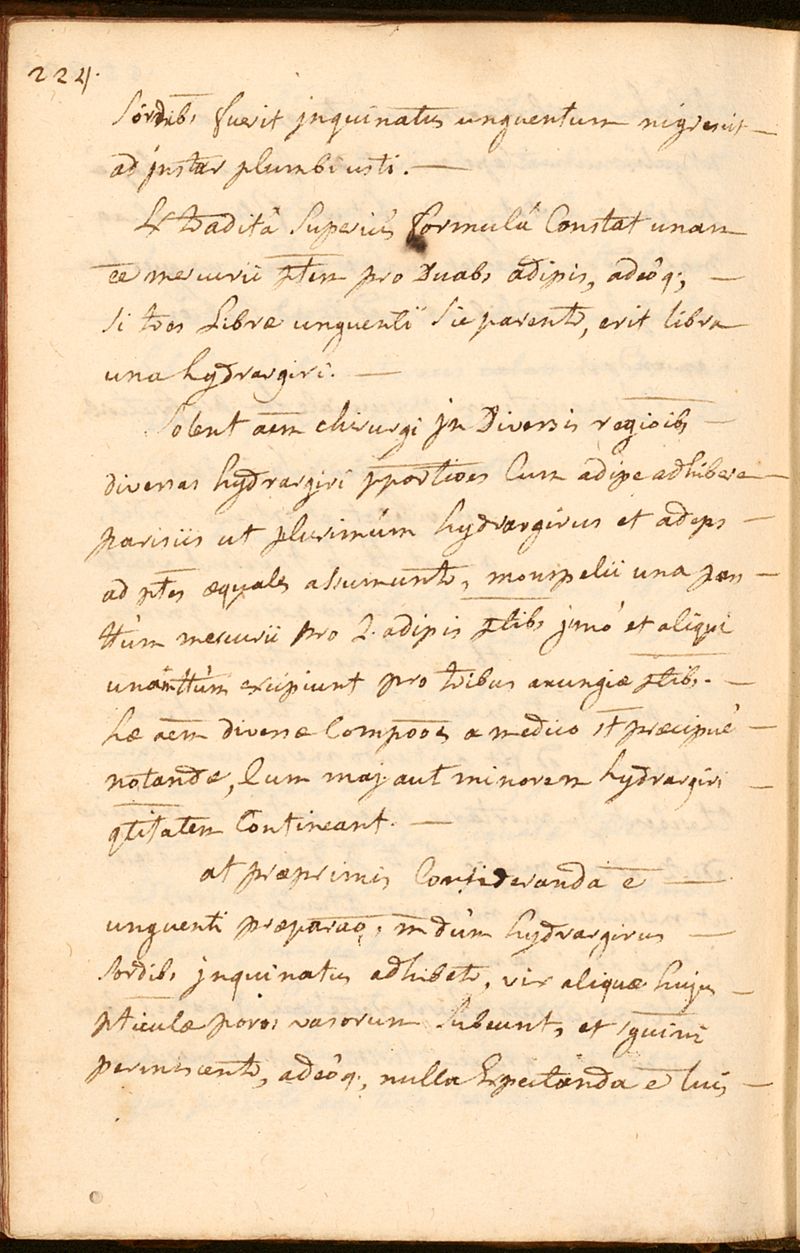 224.
Sordib, fuerit jnquinatus unguentum nigrescit
ad jnstar plumbi usti.
Ex tradita Superius formulâ Constat unam
ēē mercurii ptem pro Duabs adipis, adeôq;,
Si tres Libræ unguenti Sic parentr, erit libra
una hydrargiri.
Solent aēm chirurgi jn Diversis regioibs
diversas hydrargiri pportioes Cum adipe adhibere
parisiis ut plurimùm hydrargirus et adeps
ad ptes æquales assumuntr, monspelii una
mercurii pro 2. adipis ptibs jmó et aliqui
excipiunt pro tribus axungiæ ptibs.
hæ aēm diversæ Compooēs a medico st præcipuè
notandæ, Cum maj aut minorem hydrargiri
qtitatem Contineant.
at præprimis Consideranda ē
unguenti præparao, dùm hydrargirus
Sordibs jnquinatus adhibetr, vix aliquæ hujus
pticulæ poros vasorum Subeunt, et sguini
permiscentr, adeôq;, nulla Expectanda ē luis